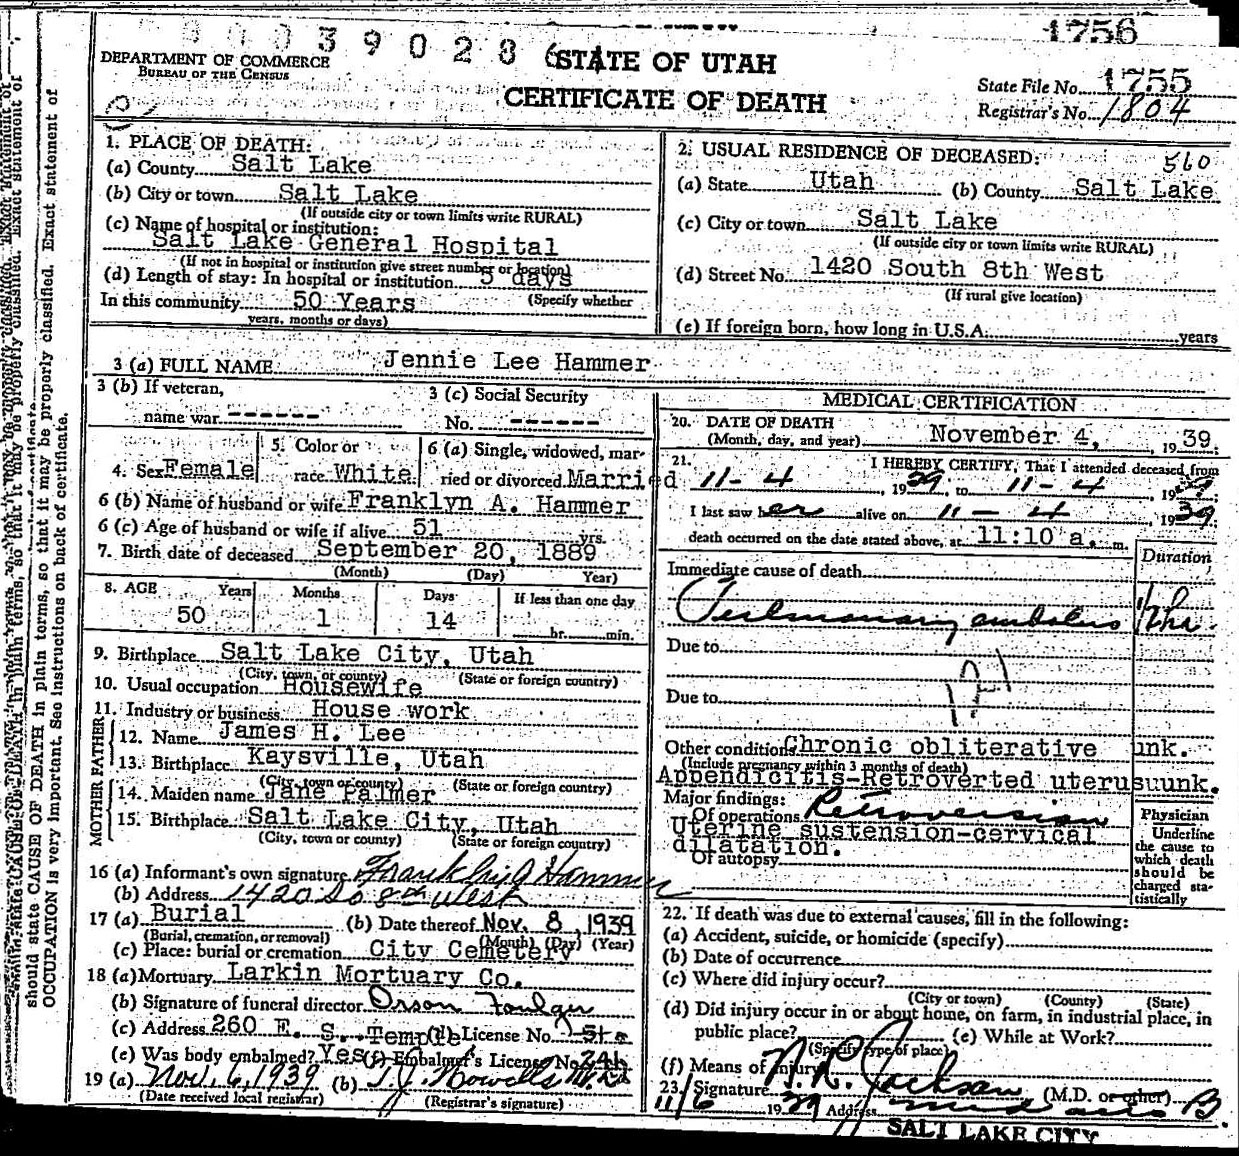 9 0 0 3 9 0 2 8 6
1756
DEPARTMENT OF COMMERCE
BUREAU OF THE CENSUS
STATE OF UTAH
CERTIFICATE OF DEATH
State File No. 1755
Registrar's No. 1804
1. PLACE OF DEATH:
(a) County Salt Lake
(b) City or town Salt Lake
(If outside city or town limits write RURAL)
(c) Name of hospital or institution:
Salt Lake General Hospital
(If not in hospital or institution give street number or location)
(d) Length of stay: In hospital or institution 5 days
In this community 50 Years (Specify whether
years, months or days)
2. USUAL RESIDENCE OF DECEASED: 560
(a) State Utah (b) County Salt Lake
(c) City or town Salt Lake
(If outside city or town limits write RURAL)
(d) Street No. 1420 South 8th West
(If rural give location)
(e) If foreign born, how long in U.S.A. years
3 (a) FULL NAME Jennie Lee Hammer
3 (b) If veteran,
name war ------
3 (c) Social Security
No. ------
4. Sex Female
5. Color or
race White
6 (a) Single, widowed, mar-
ried or divorced Married
6 (b) Name of husband or wife Franklyn A. Hammer
6 (c) Age of husband or wife if alive 51 yrs.
7. Birth date of deceased September 20, 1889
(Month) (Day) Year)
8. AGE Years Months Days If less than one day
50 1 14 hr. min.
9. Birthplace Salt Lake City, Utah
(City, town, or county) (State or foreign country)
10. Usual occupation Housewife
11. Industry or business House work
FATHER
12. Name James H. Lee
13. Birthplace Kaysville, Utah
(City, town or county) (State or foreign country)
MOTHER
14. Maiden name Jane Palmer
15. Birthplace Salt Lake City, Utah
(City, town or county) (State or foreign country)
16 (a) Informant's own signature Franklyn A Hammer
(b) Address 1420 So 8th West
17 (a) Burial (b) Date thereof Nov. 8, 1939
(Burial, cremation, or removal) (Month) (Day) (Year)
(c) Place: burial or cremation City Cemetery
18 (a) Mortuary Larkin Mortuary Co.
(b) Signature of funeral director Orson Foulger
(c) Address 260 E. S. Temple (d) License No.
(e) Was body embalmed? Yes (f) Embalmer's License No. 241
19 (a) Nov. 6, 1939 (b) T. J. Howells M.D.
(Date received local registrar) (Registrar's signature)
MEDICAL CERTIFICATION
20. DATE OF DEATH
(Month, day, and year) November 4, 1939.
21. I HEREBY CERTIFY, That I attended deceased from
11-4, 1939, to 11-4, 1939
I last saw her alive on 11-4, 1939.
death occurred on the date stated above, at 11:10 a. m.
Duration
Immediate cause of death
Pulmonary embolus 1/2 hr.
Due to
Due to
Other conditions Chronic obliterative unk.
(Include pregnancy within 3 months of death)
Appendicitis-Retroverted uterus unk.
Major findings:
Of operations Retroversion
Uterine sustension-cervical
dilatation.
Of autopsy
Physician
Underline
the cause to
which death
should be
charged sta-
tistically
22. If death was due to external causes, fill in the following:
(a) Accident, suicide, or homicide (specify)
(b) Date of occurrence
(c) Where did injury occur?
(City or town) (County) (State)
(d) Did injury occur in or about home, on farm, in industrial place, in
public place? (e) While at Work?
(Specify type of place)
(f) Means of Injury
23. Signature N. R. Jackson (M.D. or other)
11/6 1939 Address Med arts B.
SALT LAKE CITY
should state CAUSE OF DEATH in plain terms, so that it may be properly classified. Exact statement of
OCCUPATION is very important. See instructions on back of certificate.